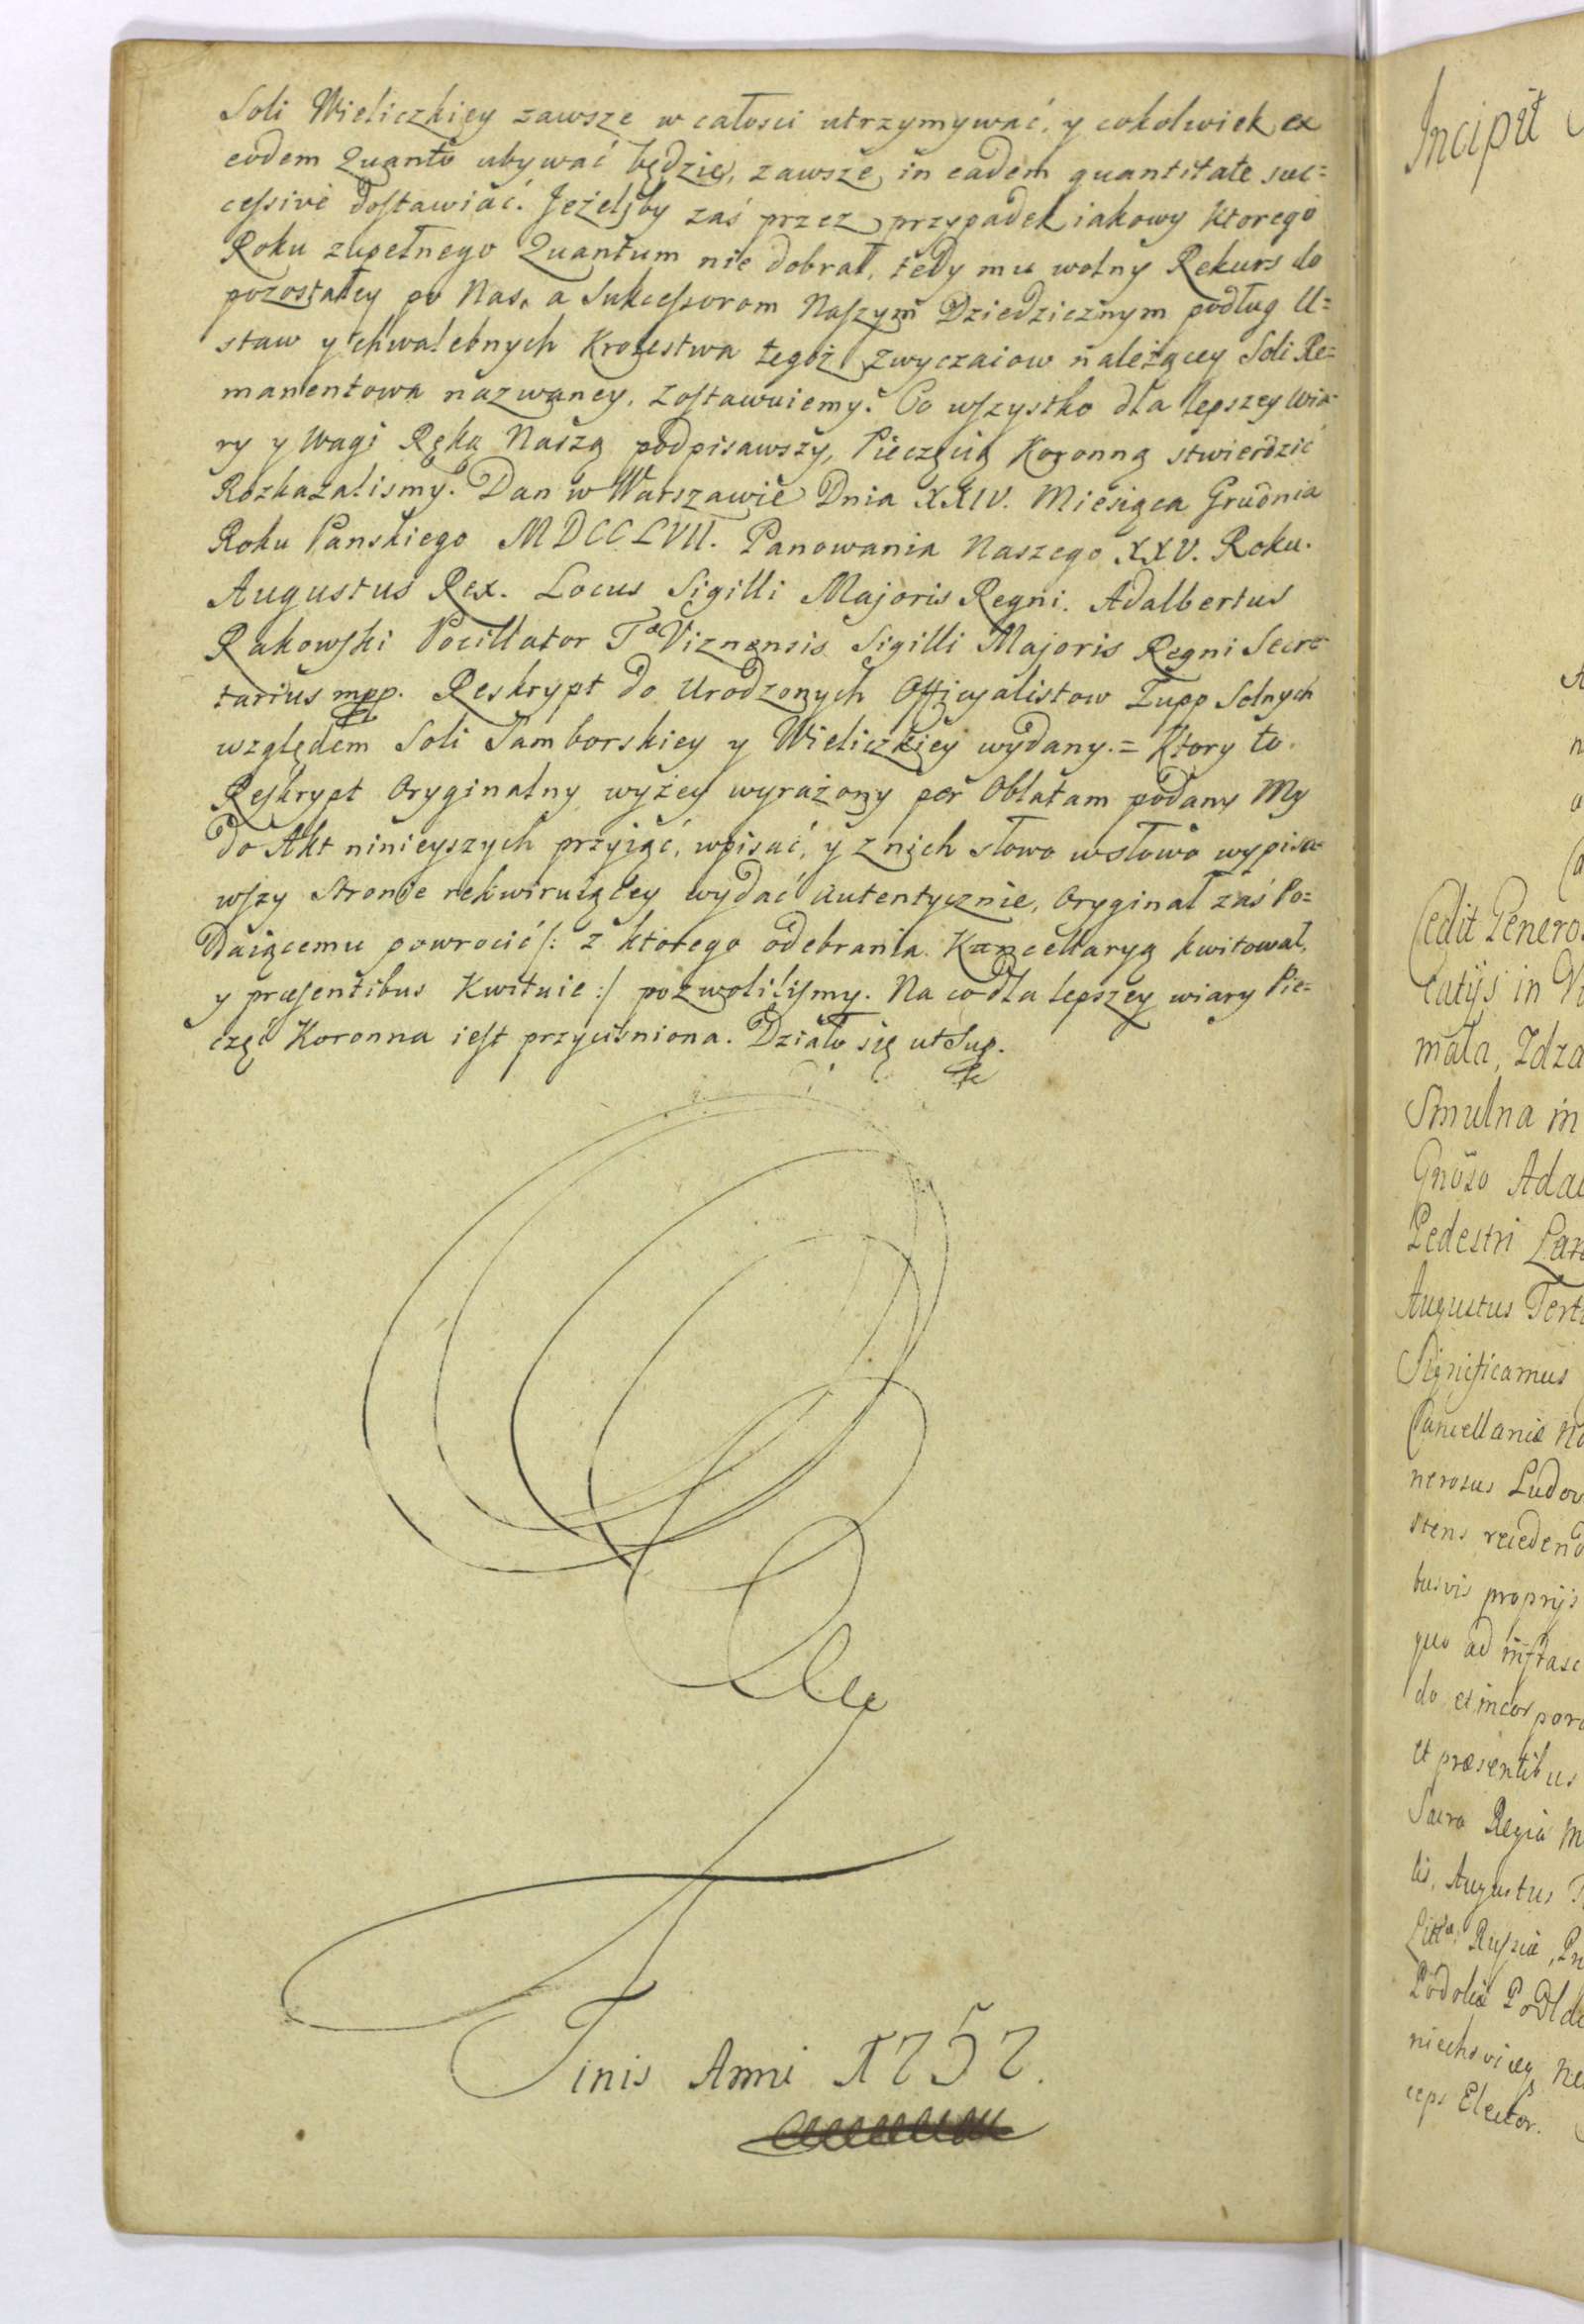 Soli Wieliczkiey zawsze w całosci utrzymywać, y cokolwiek ex
eodem Quanto ubywać będzie, zawsze in eadem quantitate suc=
cessivè dostawiać. Jeżeliby zaś przez przypadek iakowy ktorego
Roku zupełnego Quantum nie dobrał, tedy mu wolny Rekurs do
pozostałey po Nas, a Sukcessorom Naszym Dziedzicznym podług U=
staw y chwalebnych Krolestwa tegoż zwyczaiow należącey Soli Re=
manentowa nazwaney, zostawuiemy. Co wszystko dla lepszey wia=
ry y wagi Ręką Naszą podpisawszy, Pieczęcią Koronną stwierdzić
Rozkazalismy. Dan w Warszawie Dnia XXIV. Miesiąca Grudnia
Roku Panskiego MDCCLVII. Panowania Naszego XXV. Roku.
Augustus Rex. Locus Sigilli Majoris Regni. Adalbertus
Rakowski Pocillator Tæ Viznensis Sigilli Majoris Regni Secre=
tarius mpp. Reskrypt do Urodzonych Officyalistow Zupp Solnych
względem Soli Samborskiey y Wieliczkiey wydany.= Ktory to
Reskrypt Oryginalny wyżey wyrażony per Oblatam podany My
do Akt ninieyszych przyiąć, wpisać, y z nich słowo w słowo wypisa=
wszy Stronie rekwiruiącey wydać autentycznie, Oryginał zaś Po=
daiącemu powrocić /: z ktorego odebrania Kancellaryą kwitował,
y præsentibus Kwituie :/ pozwolilismy. Na co dla lepszey wiary Pie=
częć Koronna iest przycisniona. Działo się ut Sup.
Finis Anni 1757.
Incipit
Cedit Genero
catijs in
mała, Zdza
Smulna in
Gnoso Ada
Pedestri
Augustus Terti
Significamus
Cancellariæ No
nerosus Ludov
stens recedend
busvis proprijs
quo ad infrasc
do et incorpora
et præsentibus
Sacra Regia M
lis, Augustus
Russiæ, Pr
Podoliæ Podla
niechoviæq
ceps Elector.